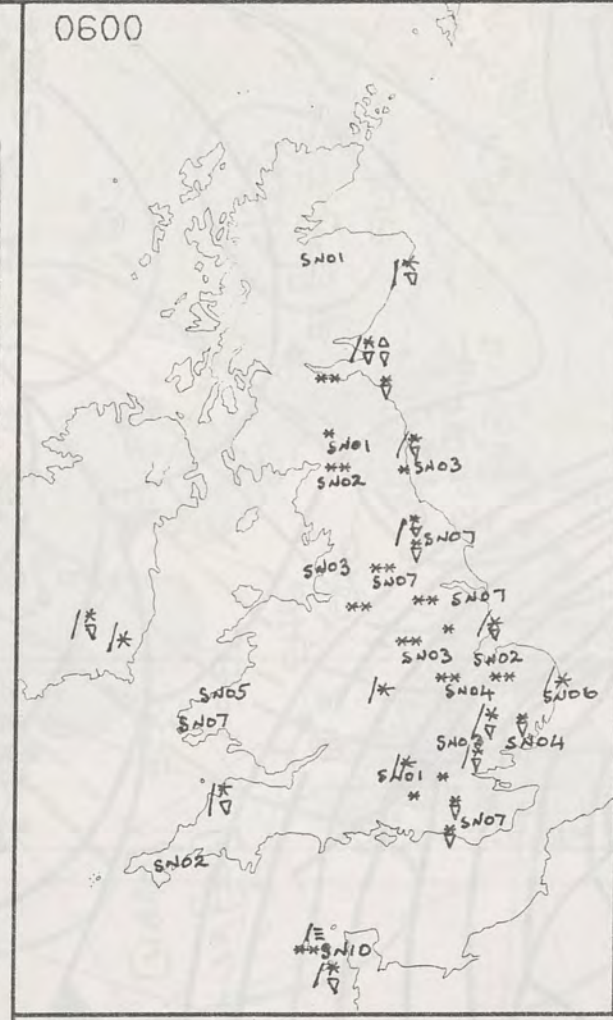 0600
SN01
SN01
SN02
SN03
SN07
SN03
SN07
SN07
SN03
SN02
SN05
SN04
SN06
SN07
SN04
SN01
SN07
SN02
SN10